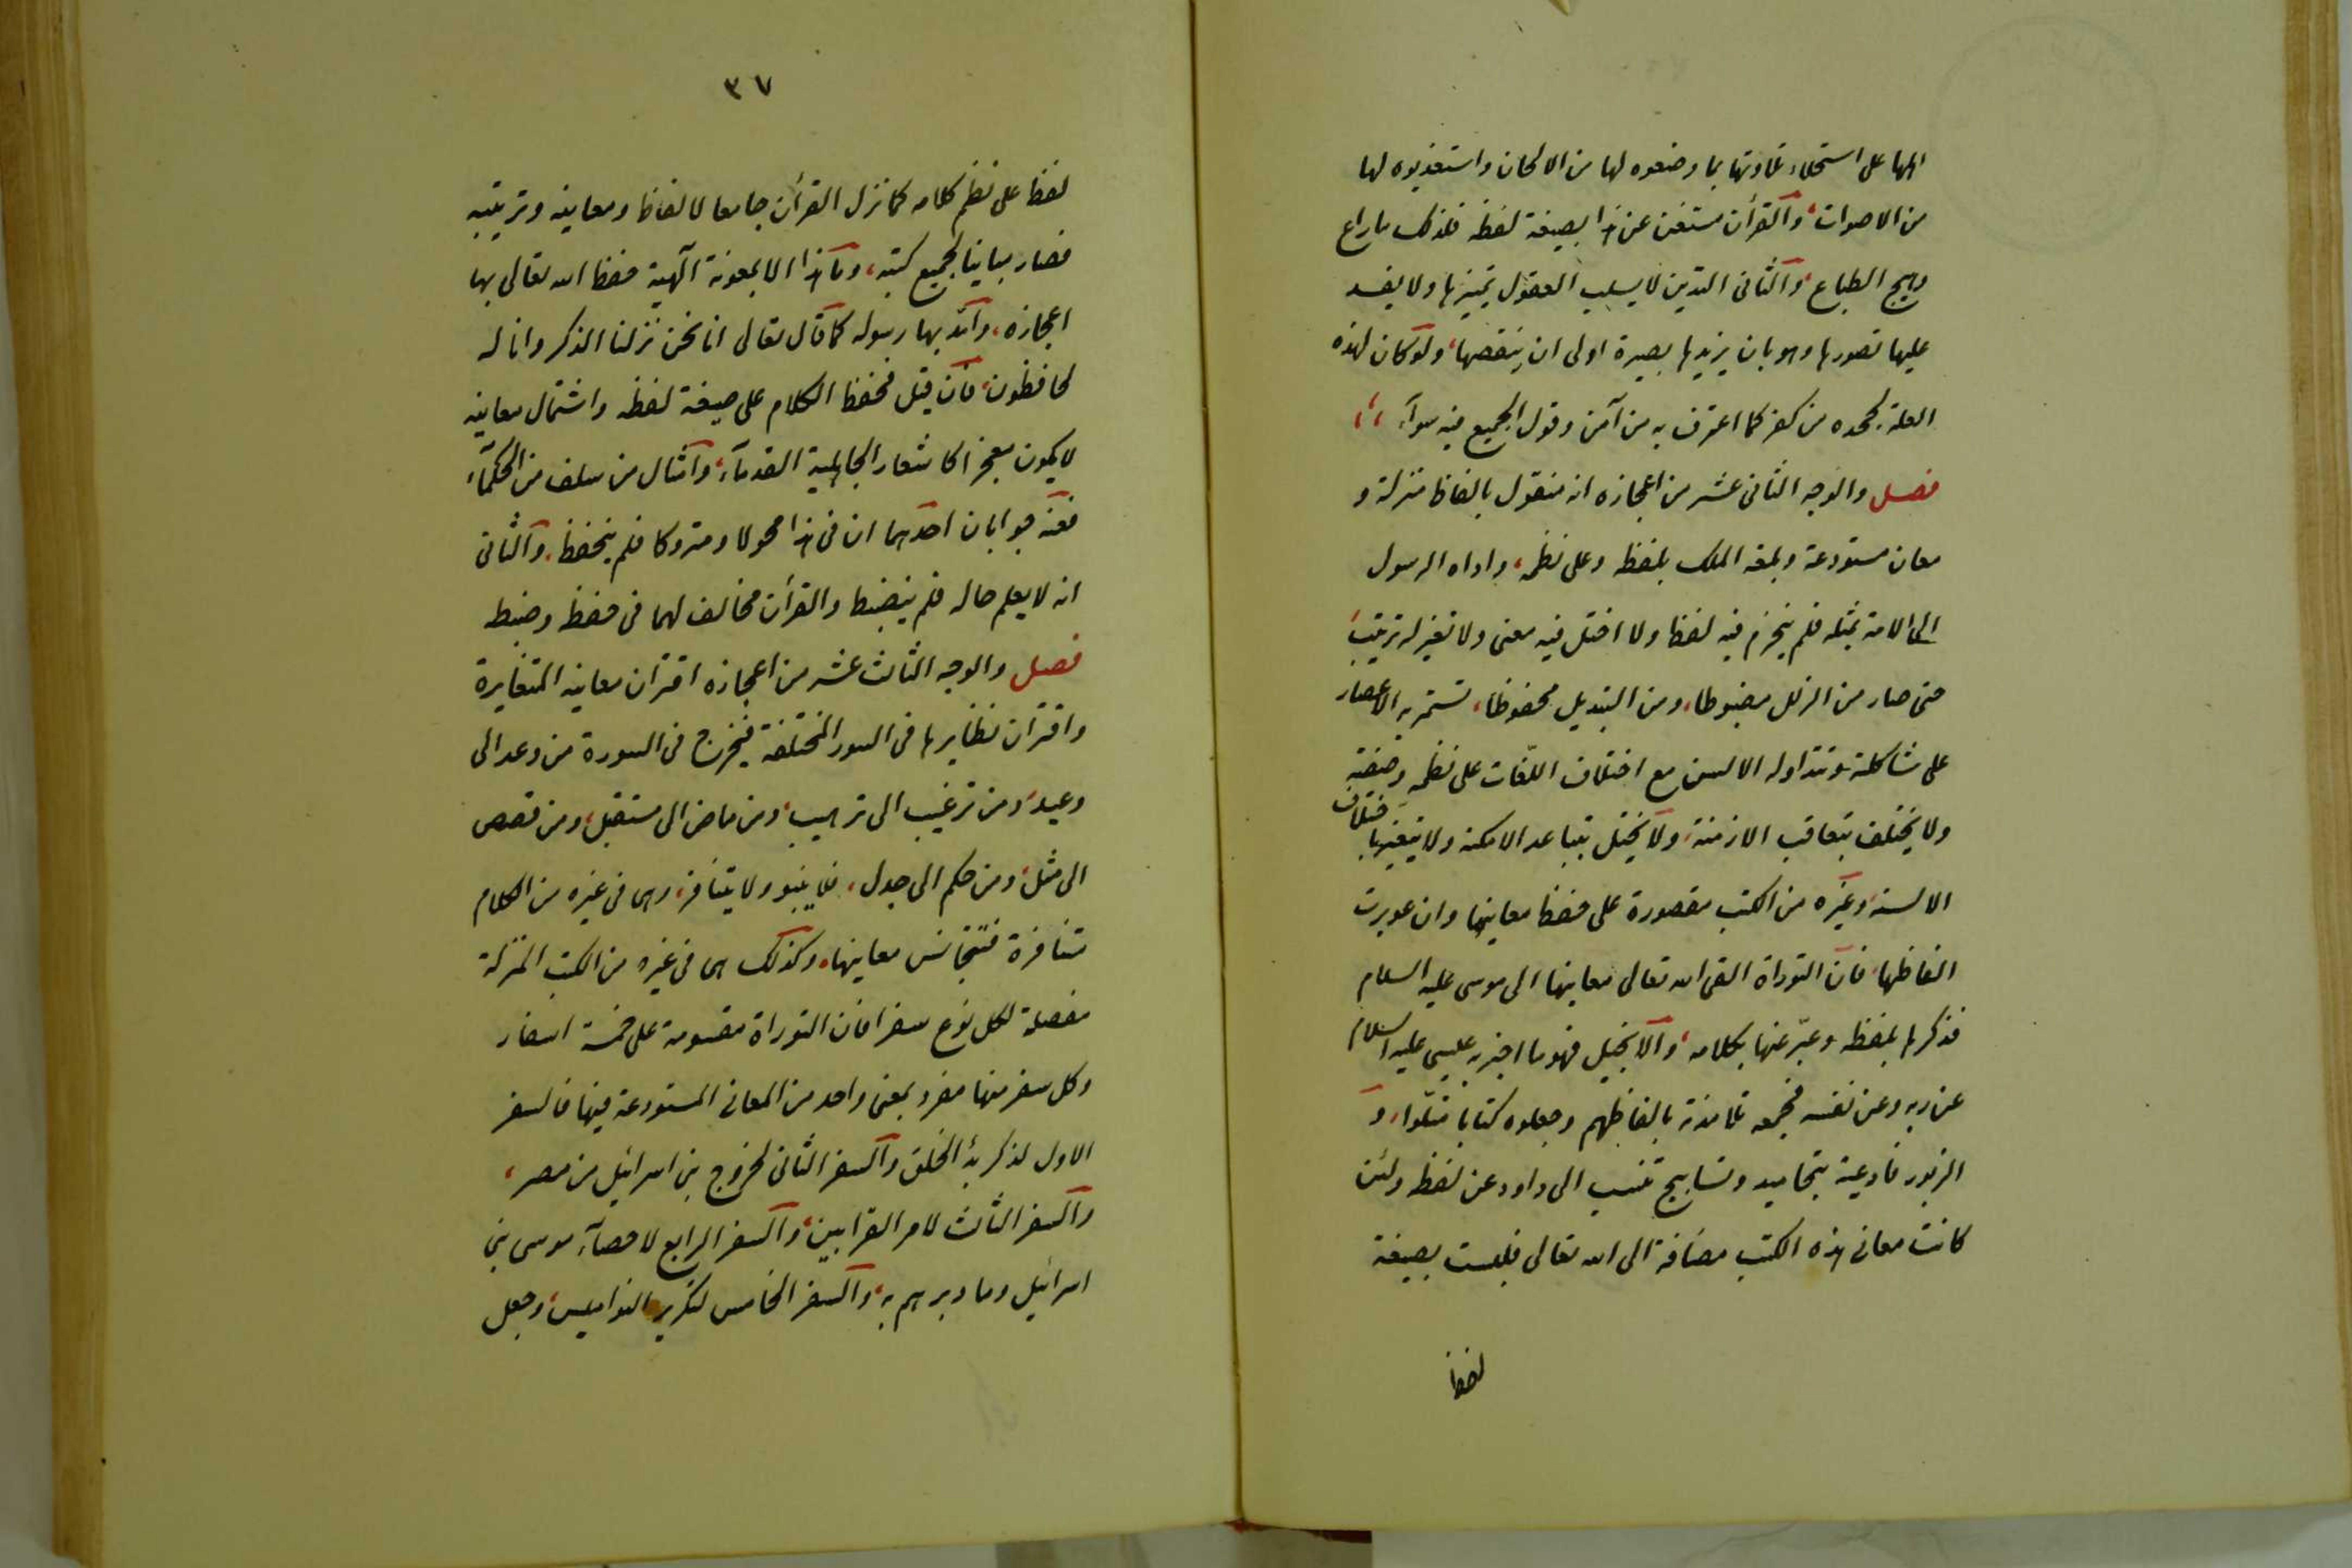 الها على استحلاء تلاوتها بما وضعوه لها من الالحان واستعذبوه لها
من الاصوات، والقرأن مستغن عن هذا بصيغة لفظه فلذلك ما راع
وهيج الطباع، والثانى التدين لا يسلب العقول تميزها ولا يفسد
عليها تصورها وهو بان يزيدها بصيرة اولى ان ينقصها، ولو كان لهذه
العلة لجحده من كفر كما اعترف به من آمن وقول الجميع فيه سوآء
فصل والوجه الثانى عشر من اعجازه انه منقول بالفاظ منزلة و
معان مستودعة وبلغه الملك بلفظه وعلى نظمه، واداه الرسول
الى الامة بمثله فلم ينخرم فيه لفظ ولا اختل فيه معنى ولا تغير له ترتيب
حتى صار من الزلل مضبوطا، ومن التبديل محفوظا، تستمر به الاعصار
على شاكلته وتتداوله الالسن مع اختلاف اللغات على نظمه وصيغته
ولا يختلف بتعاقب الازمنة، ولا يختل بتباعد الامكنة ولا يتغير باختلاف
الالسنة، وغيره من الكتب مقصورة على حفظ معاينها وان عوبرت
الفاظها، فان التوراة القى الله تعالى معاينها الى موسى عليه السلام
فذكرها بلفظه وعبّر عنها بكلامه، والانجيل فهو ما اخبر به عيسى عليه السلام
عن ربه وعن نفسه فجمعه تلامذته بالفاظهم وجعلوه كتابا متلوّا، و
الزبور فادعية بتحاميد وتسابيح تنسب الى داود عن لفظه ولئن
كانت معانى هذه الكتب مضافة الى الله تعالى فليست بصيغة
لفظ
٣٧
لفظ على نظم كلامه كما نزل القرأن جامعا لالفاظه ومعاينه وترتيبه
فصار مباينا لجميع كتبه، وما هذا الا لمعونة آلهية حفظ الله تعالى بها
اعجازه، وأيّد بها رسوله كما قال تعالى انا نحن نزلنا الذكر وانا له
لحافظون، فان قيل فحفظ الكلام على صيغة لفظه واشتمال معاينه
لا يكون معجزا كاشعار الجاهلية القدمآء، وامثال من سلف من الحكمآء
فعنه جوابان احدهما ان فى هذا محولا ومتروكا فلم ينحفظ، والثانى
انه لا يعلم حاله فلم ينضبط والقرأن مخالف لهما فى حفظ وضبط
فصل والوجه الثالث عشر من اعجازه اقتران معاينه المتغايرة
واقتران نظايرها فى السور المختلفة فيخرج فى السورة من وعد الى
وعيد، ومن ترغيب الى ترهيب، ومن ماض الى مستقبل، ومن قصص
الى مثل، ومن حكم الى جدل، فلا ينبو ولا يتنافر، وهى فى غيره من الكلام
متنافرة فتتجانس معاينها، وكذلك هى فى غيره من الكتب المنزلة
مفصلة لكل نوع سفر افان التوراة مقسومة على خمسة اسفار
وكل سفر منها مفرد بمعنى واحد من المعانى المستودعة فيها فالسفر
الاول لذكر بدأ الخلق والسفر الثانى لخروج بنى اسرائيل من مصر،
والسفر الثالث لامر القرابين، والسفر الرابع لاحصآء موسى بنى
اسرائيل وما دبرهم به، والسفر الخامس لتكرير النواميس، وجعل